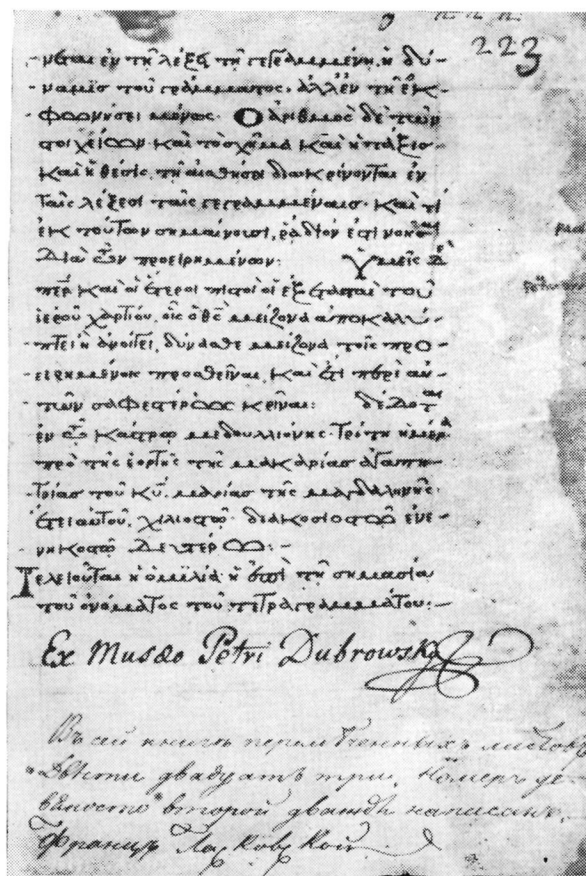 223
-νται ἐν τῇ λέξει τῇ γεγραμμένῃ, ἡ δύ-
-ναμις τοῦ γράμματος, ἀλλ' ἐν τῇ ἐκ-
-φωνήσει μόνως. Ὁ ἀριθμὸς δὲ τῶν
στοιχείων καὶ τὸ σχῆμα καὶ ἡ τάξις
καὶ ἡ θέσις, τῇ αἰσθήσει διακρίνονται ἐν
ταῖς λέξεσι ταῖς γεγραμμέναις. καὶ τί
ἐκ τούτων σημαίνουσι, ῥᾴδιόν ἐστι
διὰ τῶν προειρημένων: Ὑμεῖς δ
περ καὶ οἱ ἕτεροι πιστοὶ οἱ ἐξετασταὶ τοῦ
ἱεροῦ χαρτίου, οἷς ὁ θς μείζονα ἀποκαλύ-
πτει ἢ ἀνοίγει, δύνασθε μείζονα τοῖς προ-
ειρημένοις προσθεῖναι, καὶ ἔτι περὶ αὐ-
τῶν σαφεστέρως κρῖναι: δέδοται
ἐν τῷ κάστρῳ μεδουλλιόνης. τρίτῃ ἡμέρᾳ
πρὸ τῆς ἑορτῆς τῆς μακαρίας ἀγαπη-
τρίας τοῦ κυ, μαρίας τῆς μαγδαληνῆς
ἔτει αὐτοῦ, χιλιοστῷ διακοσιοστῷ ἐνε-
νηκοστῷ δευτέρῳ:-
Τελειοῦται ἡ ὁμιλία ἡ ἐπὶ τῇ σημασίᾳ
τοῦ ὀνόματος τοῦ τετραγραμμάτου:-
Ex Musæo Petri Dubrowski
Въ сей книгѣ перемѣченныхъ листовъ
двѣсти двадцать три. Номеръ де-
вяносто второй дважды написанъ.
Францъ Лясковской